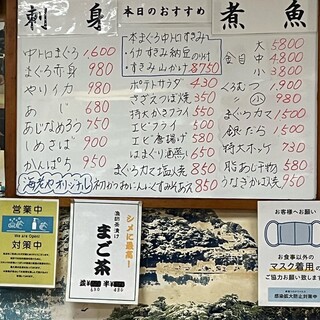 刺身
中トロまぐろ 1600
まぐろ赤身 980
やりイカ 980
あじ 680
あじなめろう 750
しめさば 900
かんぱち 950
本日のおすすめ
・本まぐろ中トロすきみ
・イカすみ納豆
・すきみ山かけ 8750
ポテトサラダ 430
さざえつぼ焼 350
特大かきフライ 550
エビフライ
エビ唐揚げ 580
はまぐり酒蒸し 650
まぐろカマ塩焼 850
海老やオリジナル 初がつおにんにくすみそあえ 850
煮魚
大 5800
金目 中 4800
小 3800
くろむつ 1900
〃 小 980
まぐろカマ 1700
銀だら 1500
特大キンキ 730
脂あじ干物 580
うなぎかば焼 950
営業中
We are Open!
対策中
シメに最高!
漁師茶漬け
まご茶
並
半
680
480
お客様へお願い
お食事以外の
マスク着用の
ご協力お願いします
感染拡大防止対策中